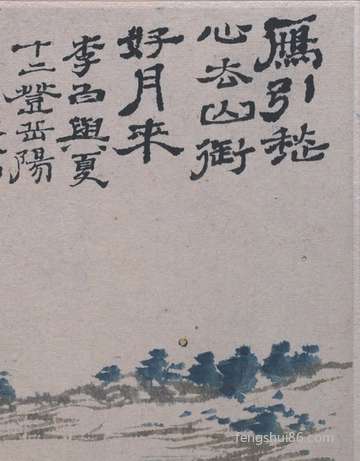 鴈引愁
心去山銜
好月来
李白與夏
十二登岳陽
fengshui86.com